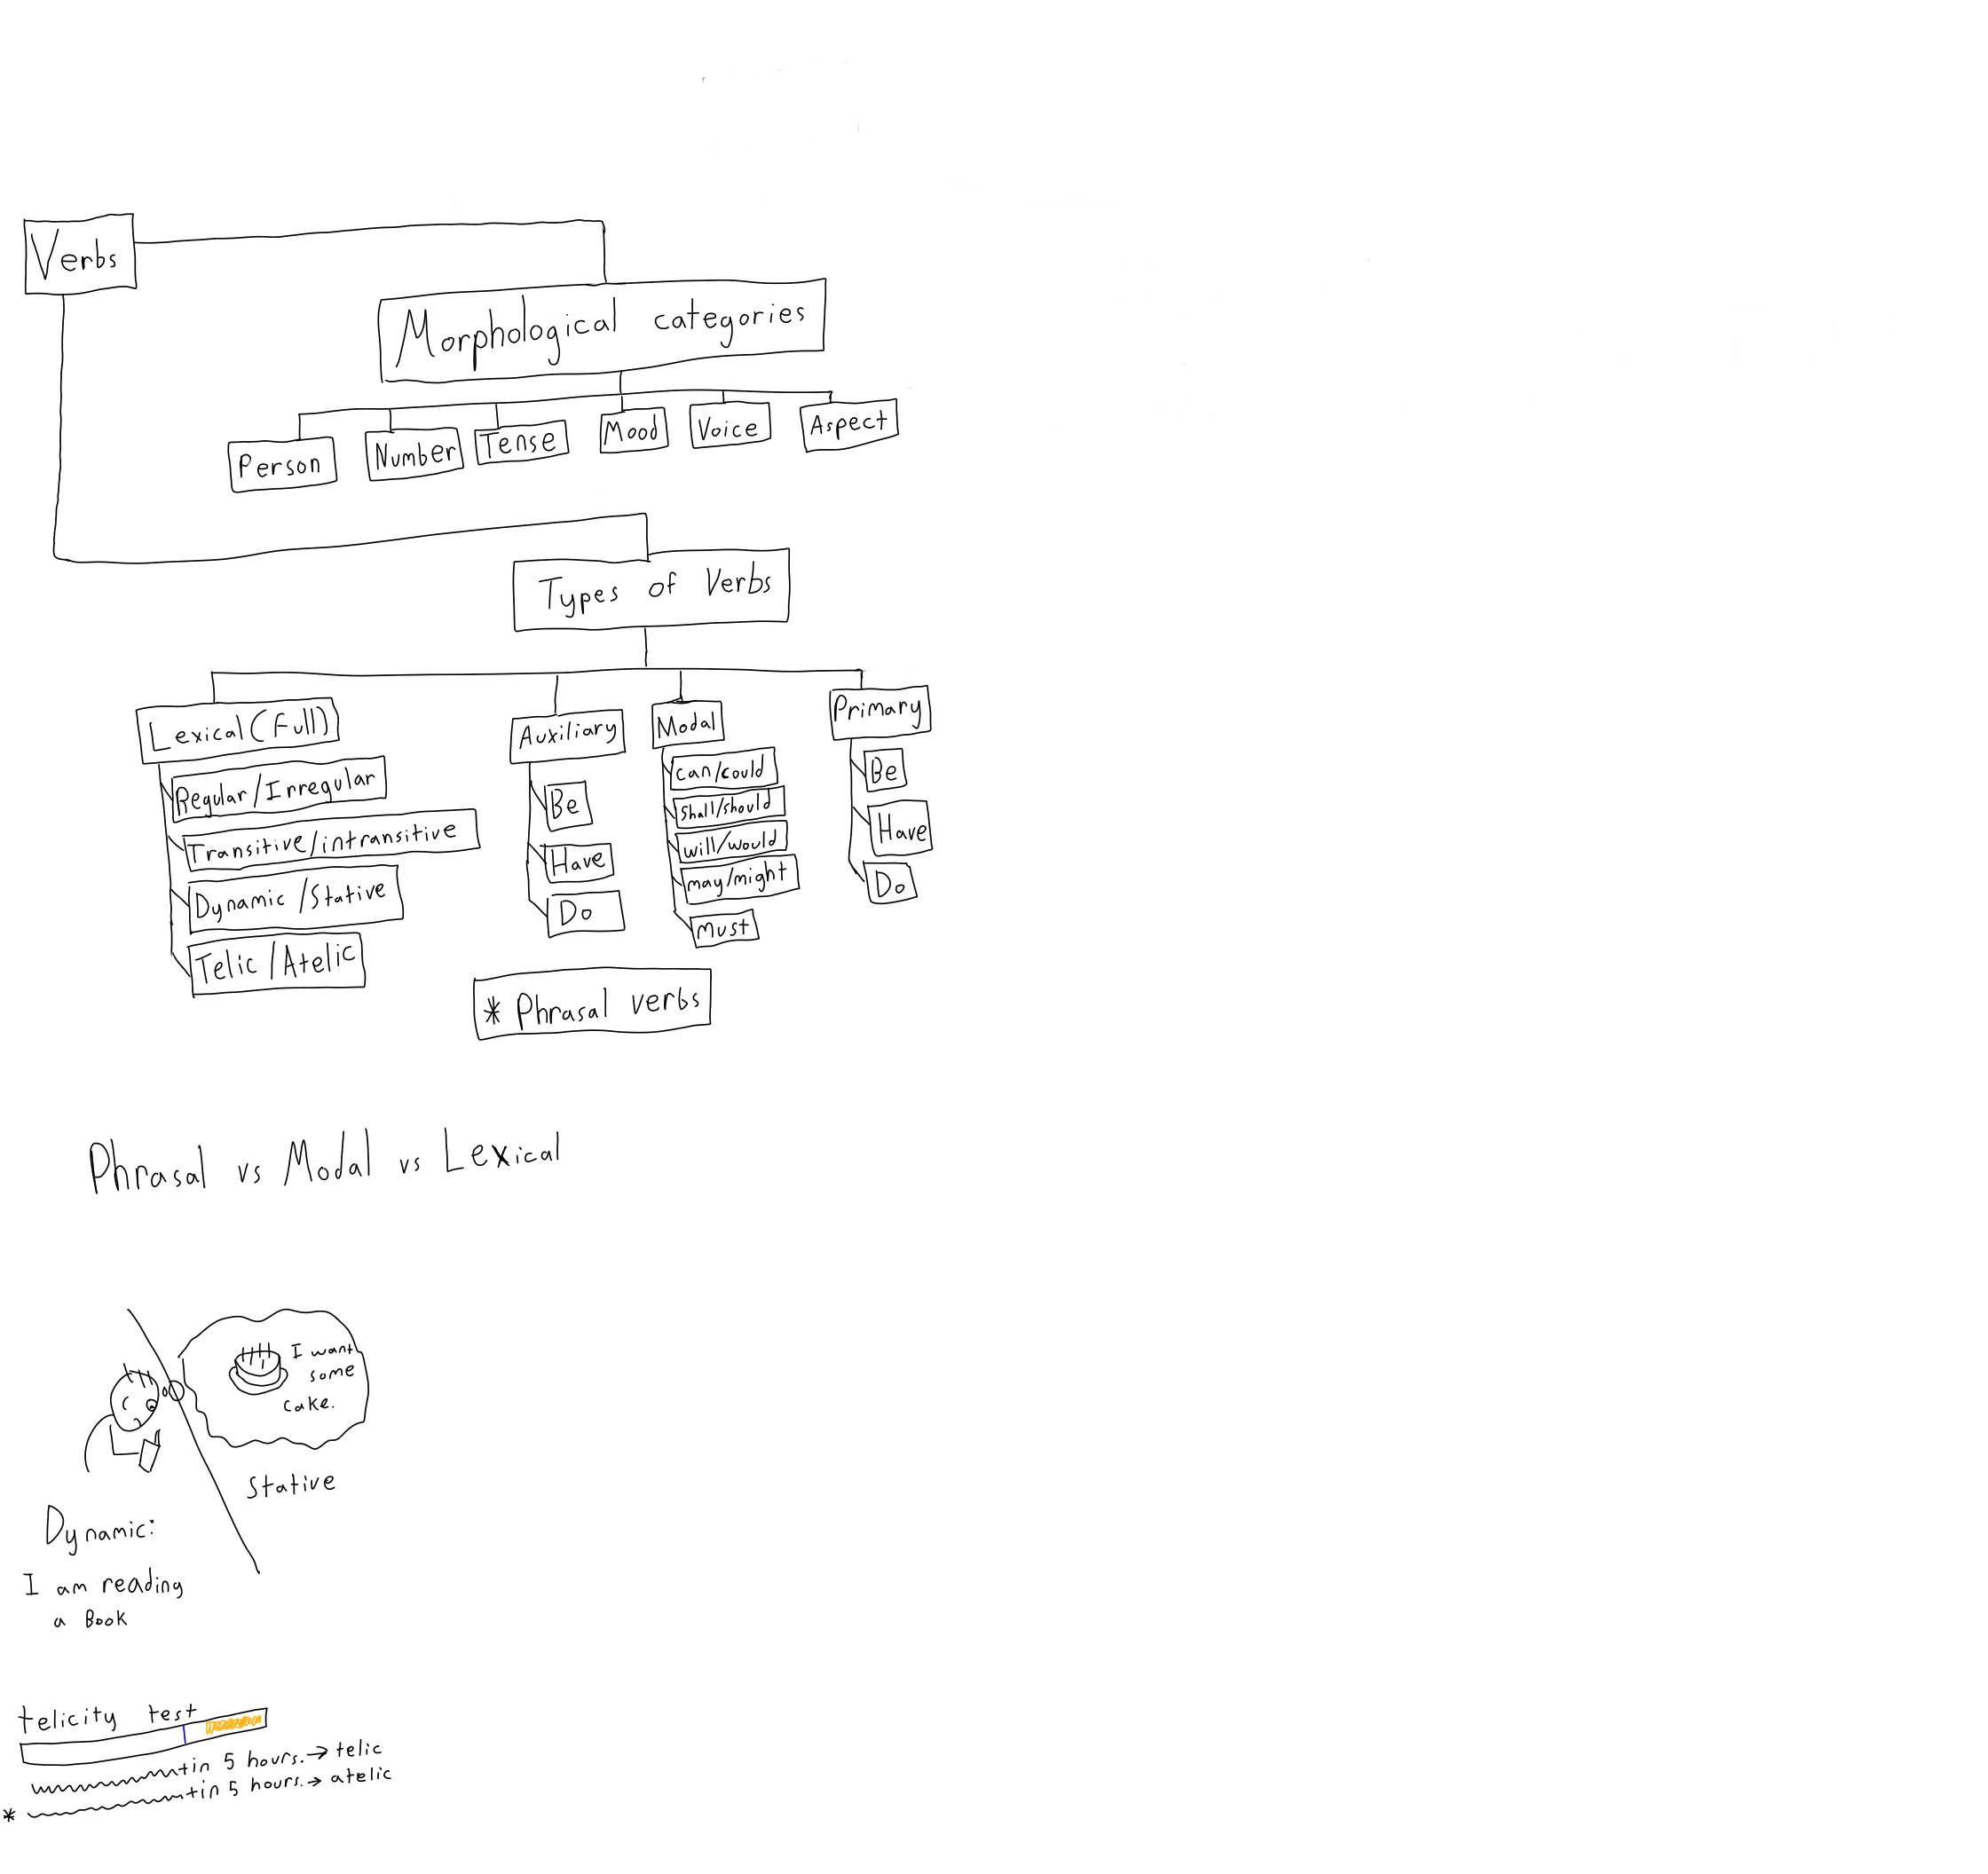 Verbs
Morphological categories
Person
Number
Tense
Mood
Voice
Aspect
Types of Verbs
Lexical (Full)
Regular/Irregular
Transitive/intransitive
Dynamic/Stative
Telic/Atelic
Auxiliary
Be
Have
Do
Modal
can/could
Shall/should
will/would
may/might
Must
Primary
Be
Have
Do
* Phrasal verbs
Phrasal vs Modal vs Lexical
I want
some
cake.
Stative
Dynamic:
I am reading
a Book
telicity test
+in 5 hours. → telic
* +in 5 hours. → atelic